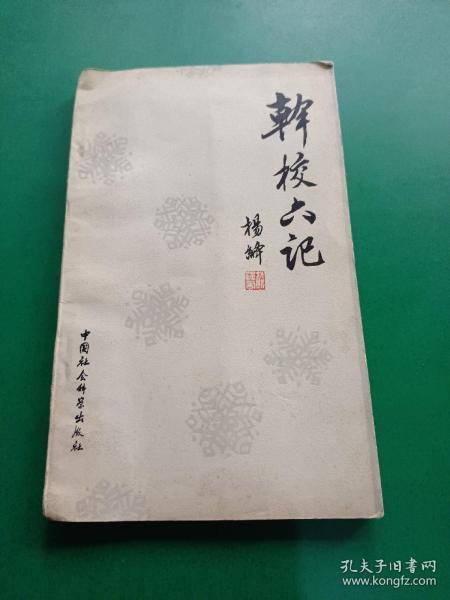 幹校六记
楊絳
中国社会科学出版社
孔夫子旧书网
www.kongfz.com